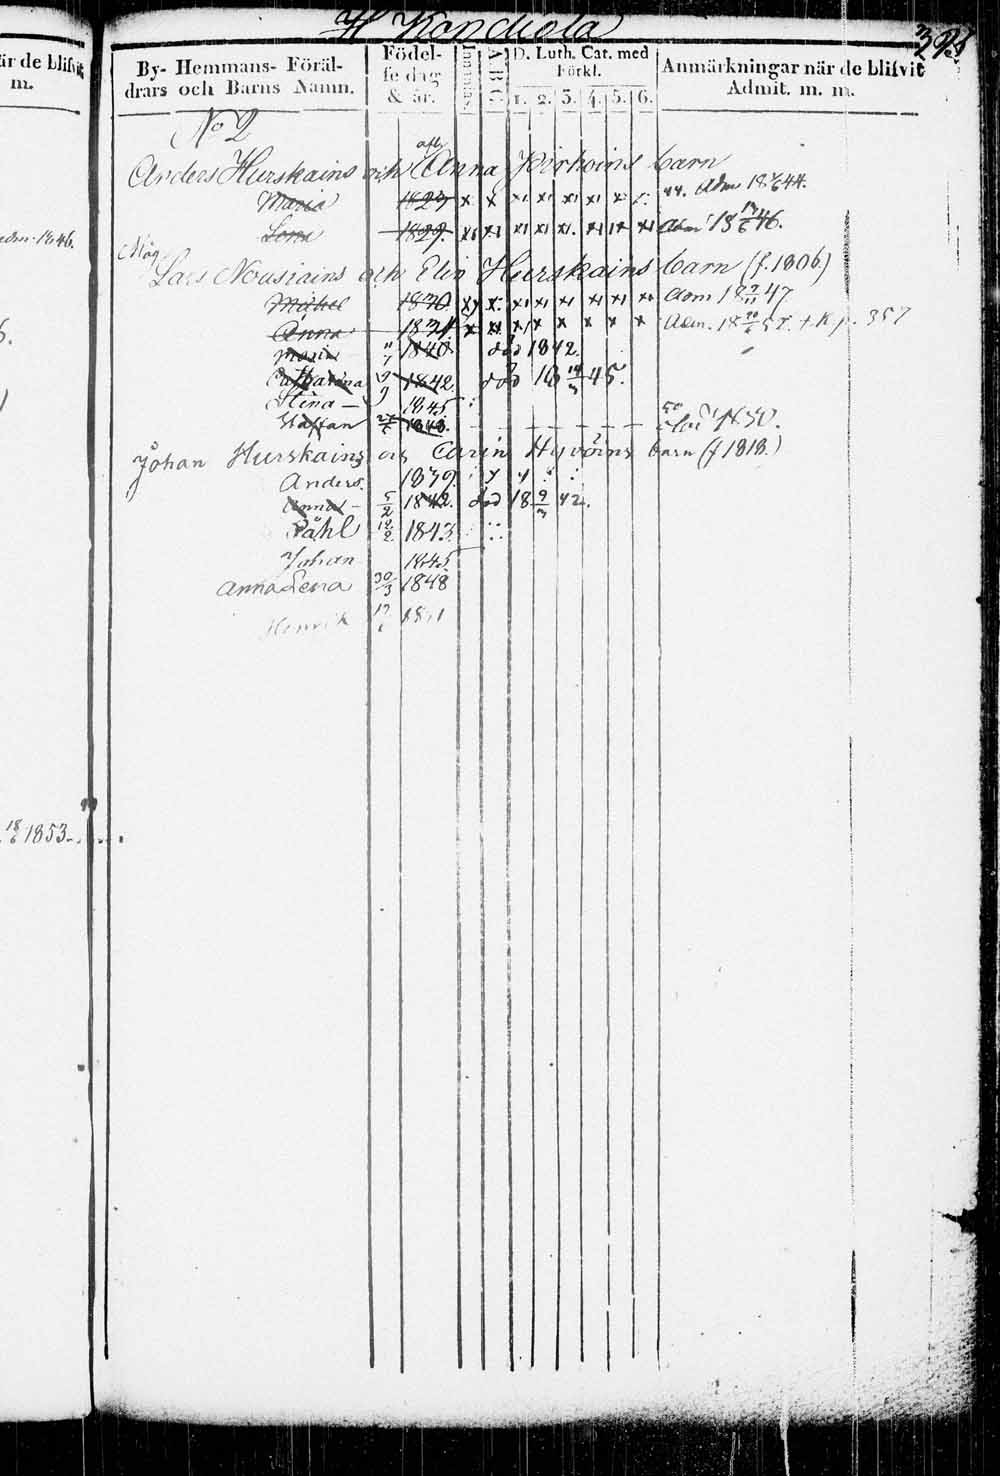 är de blifvit
m.
adm. 1846.
18/6 1853.
H Kandiola
By- Hemmans- Föräl-
drars och Barns Namn.
Födel-
se dag
& år.
Innanläs.
A B C.
D. Luth. Cat. med
Förkl.
1. 2. 3. 4. 5. 6.
Anmärkningar när de blifvit
Admit. m. m.
No 2
Anders Hurskains och afl. Anna Pirhoins barn
Maria 1829 x x x x x x x Adm 18 44.
Lena 1829. x x x x x x x Adm 18 46.
Måg
Lars Nousiains och Elin Hurskains barn (f. 1806.)
Michel 1830. x x x x x x x Adm 18 47
Anna 1834 x x x x x x x x Adm. 18 K. p. 357
Maria 1840 död 1842.
Catharina 1842. död 18 14/3 45.
Stina — 1845
Staffan 1848. — — — — — död 1850.
Johan Hurskains och Carin Hyvöins barn (f 1818.)
Anders. 1839.
Anna — 5/2 1842. död 18 9/3 42.
Påhl 12/2 1843.
Johan 1845
Anna Lena 30/3 1848
Henrik 17/6 1851